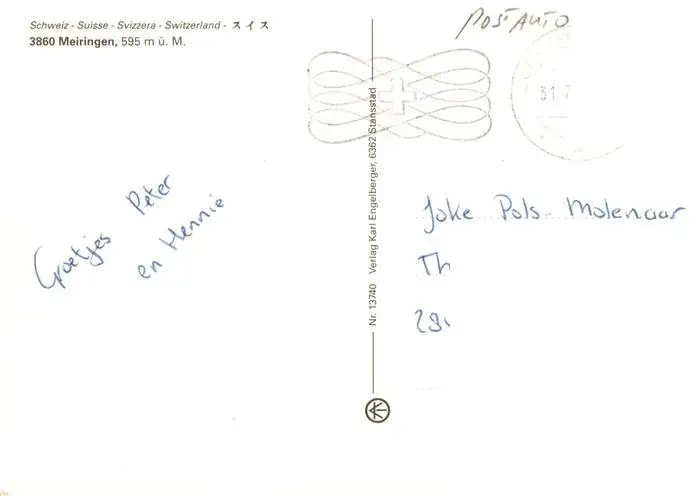 Schweiz - Suisse - Svizzera - Switzerland - スイス
3860 Meiringen, 595 m ü. M.
POSTAUTO
31.7
Groetjes Peter
en Hennie
Nr. 13740 Verlag Karl Engelberger, 6362 Stansstad
Joke Pols-Molenaar
Th
28